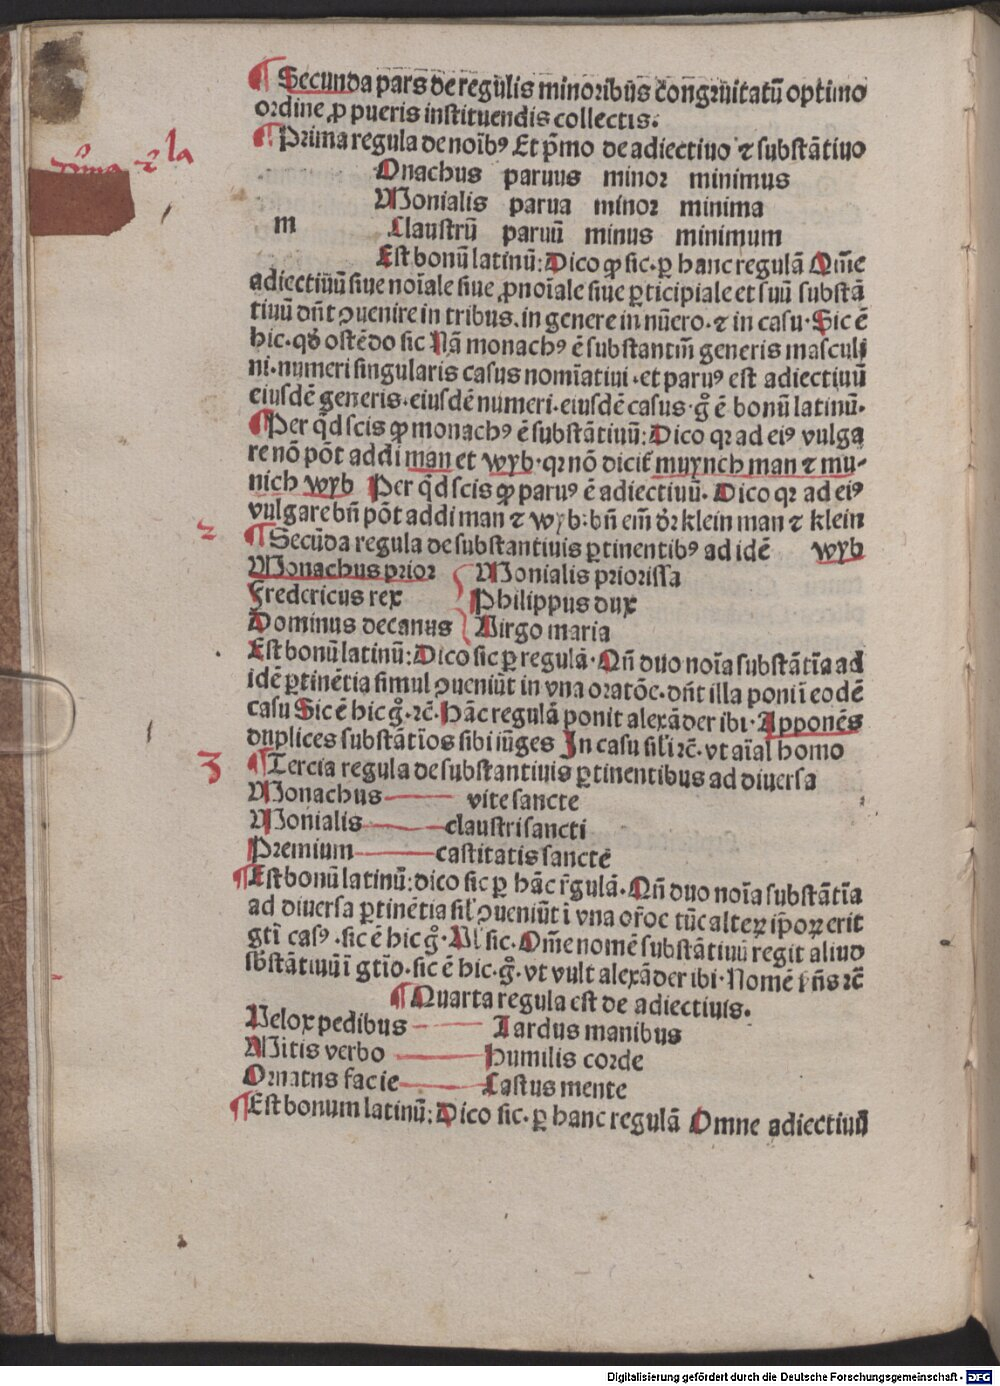 ¶ Secunda pars de regulis minoribus congruitatū optimo
ordine ꝓ pueris instituendis collectis.
¶ Prima regula de noīb⁹ Et p̄mo de adiectiuo ⁊ substātiuo
Onachus paruus minor minimus
Monialis parua minor minima
m Claustrū paruū minus minimum
Est bonū latinū: Dico ꝙ sic. ꝑ hanc regulā Om̄e
adiectiuū siue noīale siue ꝓnoīale siue ꝑticipiale et suū substā
tiuū dn̄t ꝯuenire in tribus. in genere in nūero. ⁊ in casu. Sic ē
hic. qḋ ostēdo sic Nā monach⁹ ē substantiū generis masculi
ni. numeri singularis casus nomīatiui. et paru⁹ est adiectiuū
eiusdē generis. eiusdē numeri. eiusdē casus. gͦ ē bonū latinū.
¶ Per q̄d scis ꝙ monach⁹ ē substātiuū: Dico qꝛ ad ei⁹ vulga
re nō pōt addi man et wyb. qꝛ nō dicit̄ muynch man ⁊ mu-
nich wyb Per q̄d scis ꝙ paru⁹ ē adiectiuū. Dico qꝛ ad ei⁹
vulgare bn̄ pōt addi man ⁊ wyb: bn̄ em̄ dꝛ klein man ⁊ klein
2 ¶ Secūda regula de substantiuis ꝑtinentib⁹ ad idē wyb
Monachus prior Monialis priorissa
Fredericus rex Philippus dux
Dominus decanus Virgo maria
Est bonū latinū: Dico sic ꝑ regulā. Qn̄ duo noīa substātīa ad
idē ꝑtinētia simul ꝯueniūt in vna oratōe. dn̄t illa poni ī eodē
casu Sic ē hic gͦ. ⁊c̄. Hāc regulā ponit alexāder ibi. Apponēs
duplices substātīos sibi iūges In casu sil'i ⁊c̄. vt aīal homo
3 ¶ Tercia regula de substantiuis ꝑtinentibus ad diuersa
Monachus vite sancte
Monialis claustri sancti
Premium castitatis sancte
¶ Est bonū latinū: dico sic ꝑ hāc r̄gulā. Qn̄ duo noīa substātīa
ad diuersa ꝑtinētia sil' ꝯueniūt ī vna or̄oe tūc alteꝝ ip̄oꝝ erit
gtī cas⁹. sic ē hic gͦ. Ul' sic. Om̄e nomē substātiuū regit aliud
sb̄stātiuū ī gtīo. sic ē hic. gͦ. vt vult alexāder ibi. Nomē ſn̄s ⁊c̄
¶ Quarta regula est de adiectiuis.
Velox pedibus Tardus manibus
Mitis verbo Humilis corde
Ornatns facie Castus mente
¶ Est bonum latinū: Dico sic. ꝑ hanc regulā Omne adiectiuū
Digitalisierung gefördert durch die Deutsche Forschungsgemeinschaft - DFG